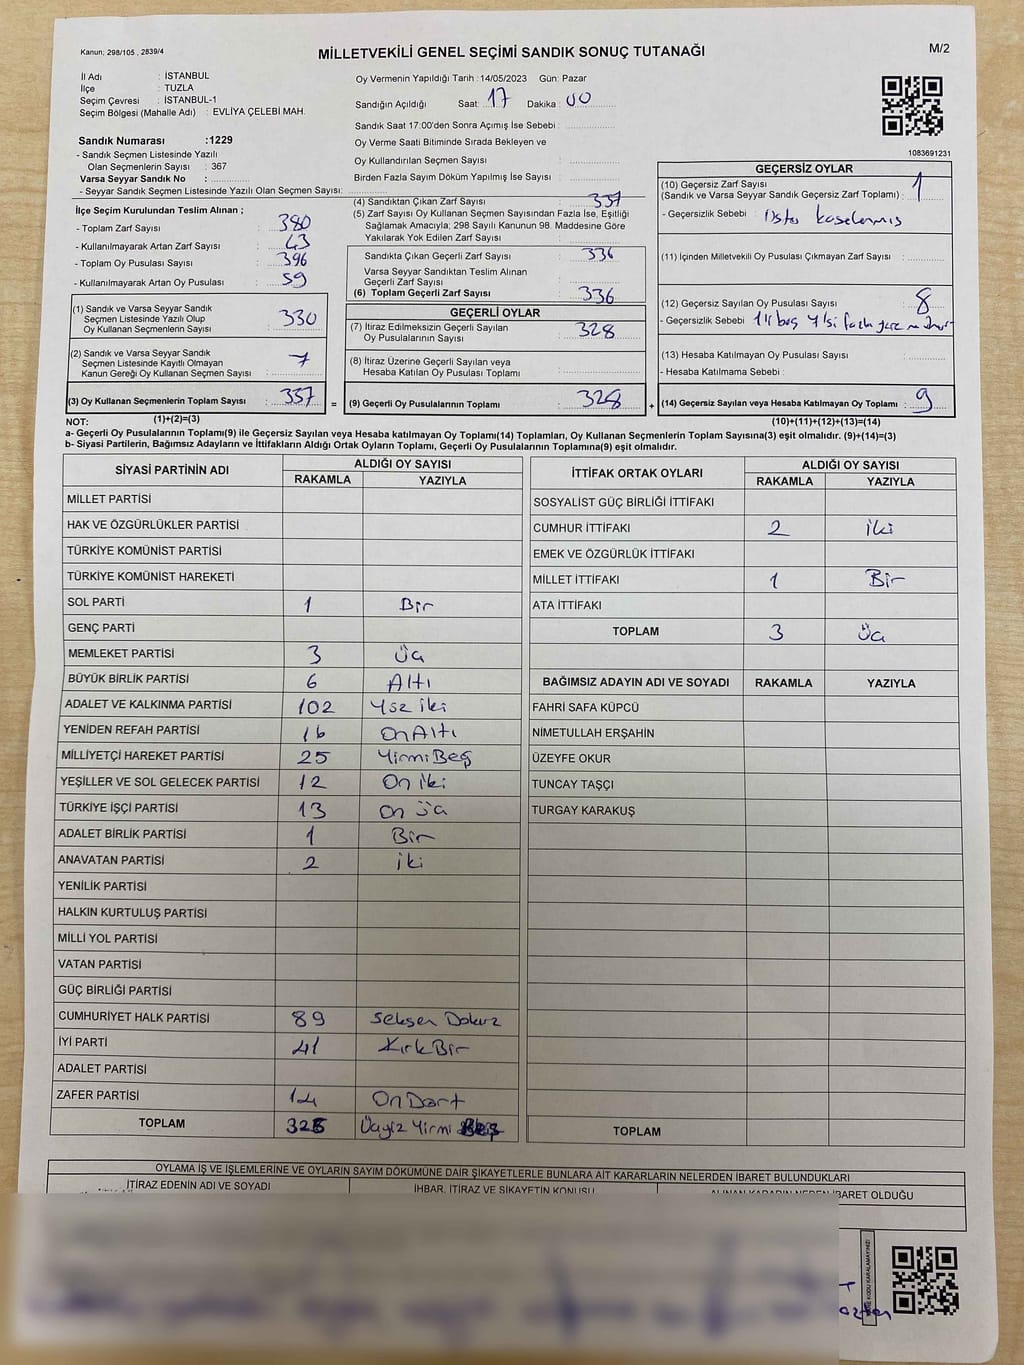 Kanun; 298/105 , 2839/4
MİLLETVEKİLİ GENEL SEÇİMİ SANDIK SONUÇ TUTANAĞI
M/2
İl Adı : İSTANBUL
İlçe : TUZLA
Seçim Çevresi : İSTANBUL-1
Seçim Bölgesi (Mahalle Adı) : EVLİYA ÇELEBİ MAH.
Oy Vermenin Yapıldığı Tarih :14/05/2023 Gün: Pazar
Sandığın Açıldığı Saat: 17 Dakika : 00
Sandık Saat 17:00'den Sonra Açımış İse Sebebi :
Oy Verme Saati Bitiminde Sırada Bekleyen ve
Oy Kullandırılan Seçmen Sayısı :
Birden Fazla Sayım Döküm Yapılmış İse Sayısı :
Sandık Numarası :1229
- Sandık Seçmen Listesinde Yazılı
Olan Seçmenlerin Sayısı : 367
Varsa Seyyar Sandık No :
- Seyyar Sandık Seçmen Listesinde Yazılı Olan Seçmen Sayısı:
1083691231
İlçe Seçim Kurulundan Teslim Alınan ;
- Toplam Zarf Sayısı : 380
- Kullanılmayarak Artan Zarf Sayısı : 43
- Toplam Oy Pusulası Sayısı : 396
- Kullanılmayarak Artan Oy Pusulası : 59
(1) Sandık ve Varsa Seyyar Sandık
Seçmen Listesinde Yazılı Olup
Oy Kullanan Seçmenlerin Sayısı : 330
(2) Sandık ve Varsa Seyyar Sandık
Seçmen Listesinde Kayıtlı Olmayan
Kanun Gereği Oy Kullanan Seçmen Sayısı : 7
(3) Oy Kullanan Seçmenlerin Toplam Sayısı : 337 =
(4) Sandıktan Çıkan Zarf Sayısı : 337
(5) Zarf Sayısı Oy Kullanan Seçmen Sayısından Fazla İse, Eşitliği
Sağlamak Amacıyla; 298 Sayılı Kanunun 98. Maddesine Göre
Yakılarak Yok Edilen Zarf Sayısı :
Sandıkta Çıkan Geçerli Zarf Sayısı : 336
Varsa Seyyar Sandıktan Teslim Alınan
Geçerli Zarf Sayısı :
(6) Toplam Geçerli Zarf Sayısı : 336
GEÇERLİ OYLAR
(7) İtiraz Edilmeksizin Geçerli Sayılan
Oy Pusulalarının Sayısı : 328
(8) İtiraz Üzerine Geçerli Sayılan veya
Hesaba Katılan Oy Pusulası Toplamı :
(9) Geçerli Oy Pusulalarının Toplamı : 328 +
GEÇERSİZ OYLAR
(10) Geçersiz Zarf Sayısı
(Sandık ve Varsa Seyyar Sandık Geçersiz Zarf Toplamı) : 1
- Geçersizlik Sebebi :
(11) İçinden Milletvekili Oy Pusulası Çıkmayan Zarf Sayısı :
(12) Geçersiz Sayılan Oy Pusulası Sayısı : 8
- Geçersizlik Sebebi
(13) Hesaba Katılmayan Oy Pusulası Sayısı :
- Hesaba Katılmama Sebebi :
(14) Geçersiz Sayılan veya Hesaba Katılmayan Oy Toplamı : 9
NOT: (1)+(2)=(3)
(10)+(11)+(12)+(13)=(14)
a- Geçerli Oy Pusulalarının Toplamı(9) ile Geçersiz Sayılan veya Hesaba katılmayan Oy Toplamı(14) Toplamları, Oy Kullanan Seçmenlerin Toplam Sayısına(3) eşit olmalıdır. (9)+(14)=(3)
b- Siyasi Partilerin, Bağımsız Adayların ve İttifakların Aldığı Ortak Oyların Toplamı, Geçerli Oy Pusulalarının Toplamına(9) eşit olmalıdır.
SİYASİ PARTİNİN ADI ALDIĞI OY SAYISI
RAKAMLA YAZIYLA
MİLLET PARTİSİ
HAK VE ÖZGÜRLÜKLER PARTİSİ
TÜRKİYE KOMÜNİST PARTİSİ
TÜRKİYE KOMÜNİST HAREKETİ
SOL PARTİ 1 Bir
GENÇ PARTİ
MEMLEKET PARTİSİ 3 Üç
BÜYÜK BİRLİK PARTİSİ 6 Altı
ADALET VE KALKINMA PARTİSİ 102 Yüz iki
YENİDEN REFAH PARTİSİ 16 OnAltı
MİLLİYETÇİ HAREKET PARTİSİ 25 YirmiBeş
YEŞİLLER VE SOL GELECEK PARTİSİ 12 On iki
TÜRKİYE İŞÇİ PARTİSİ 13 On üç
ADALET BİRLİK PARTİSİ 1 Bir
ANAVATAN PARTİSİ 2 iki
YENİLİK PARTİSİ
HALKIN KURTULUŞ PARTİSİ
MİLLİ YOL PARTİSİ
VATAN PARTİSİ
GÜÇ BİRLİĞİ PARTİSİ
CUMHURİYET HALK PARTİSİ 89 Seksen Dokuz
İYİ PARTİ 41 KırkBir
ADALET PARTİSİ
ZAFER PARTİSİ 14 OnDört
TOPLAM 325 Üçyüz Yirmi Beş
İTTİFAK ORTAK OYLARI ALDIĞI OY SAYISI
RAKAMLA YAZIYLA
SOSYALİST GÜÇ BİRLİĞİ İTTİFAKI
CUMHUR İTTİFAKI 2 iki
EMEK VE ÖZGÜRLÜK İTTİFAKI
MİLLET İTTİFAKI 1 Bir
ATA İTTİFAKI
TOPLAM 3 Üç
BAĞIMSIZ ADAYIN ADI VE SOYADI RAKAMLA YAZIYLA
FAHRİ SAFA KÜPCÜ
NİMETULLAH ERŞAHİN
ÜZEYFE OKUR
TUNCAY TAŞÇI
TURGAY KARAKUŞ
TOPLAM
OYLAMA İŞ VE İŞLEMLERİNE VE OYLARIN SAYIM DÖKÜMÜNE DAİR ŞİKAYETLERLE BUNLARA AİT KARARLARIN NELERDEN İBARET BULUNDUKLARI
İTİRAZ EDENİN ADI VE SOYADI İHBAR, İTİRAZ VE ŞİKAYETİN KONUSU ALINAN KARARIN NEDEN İBARET OLDUĞU